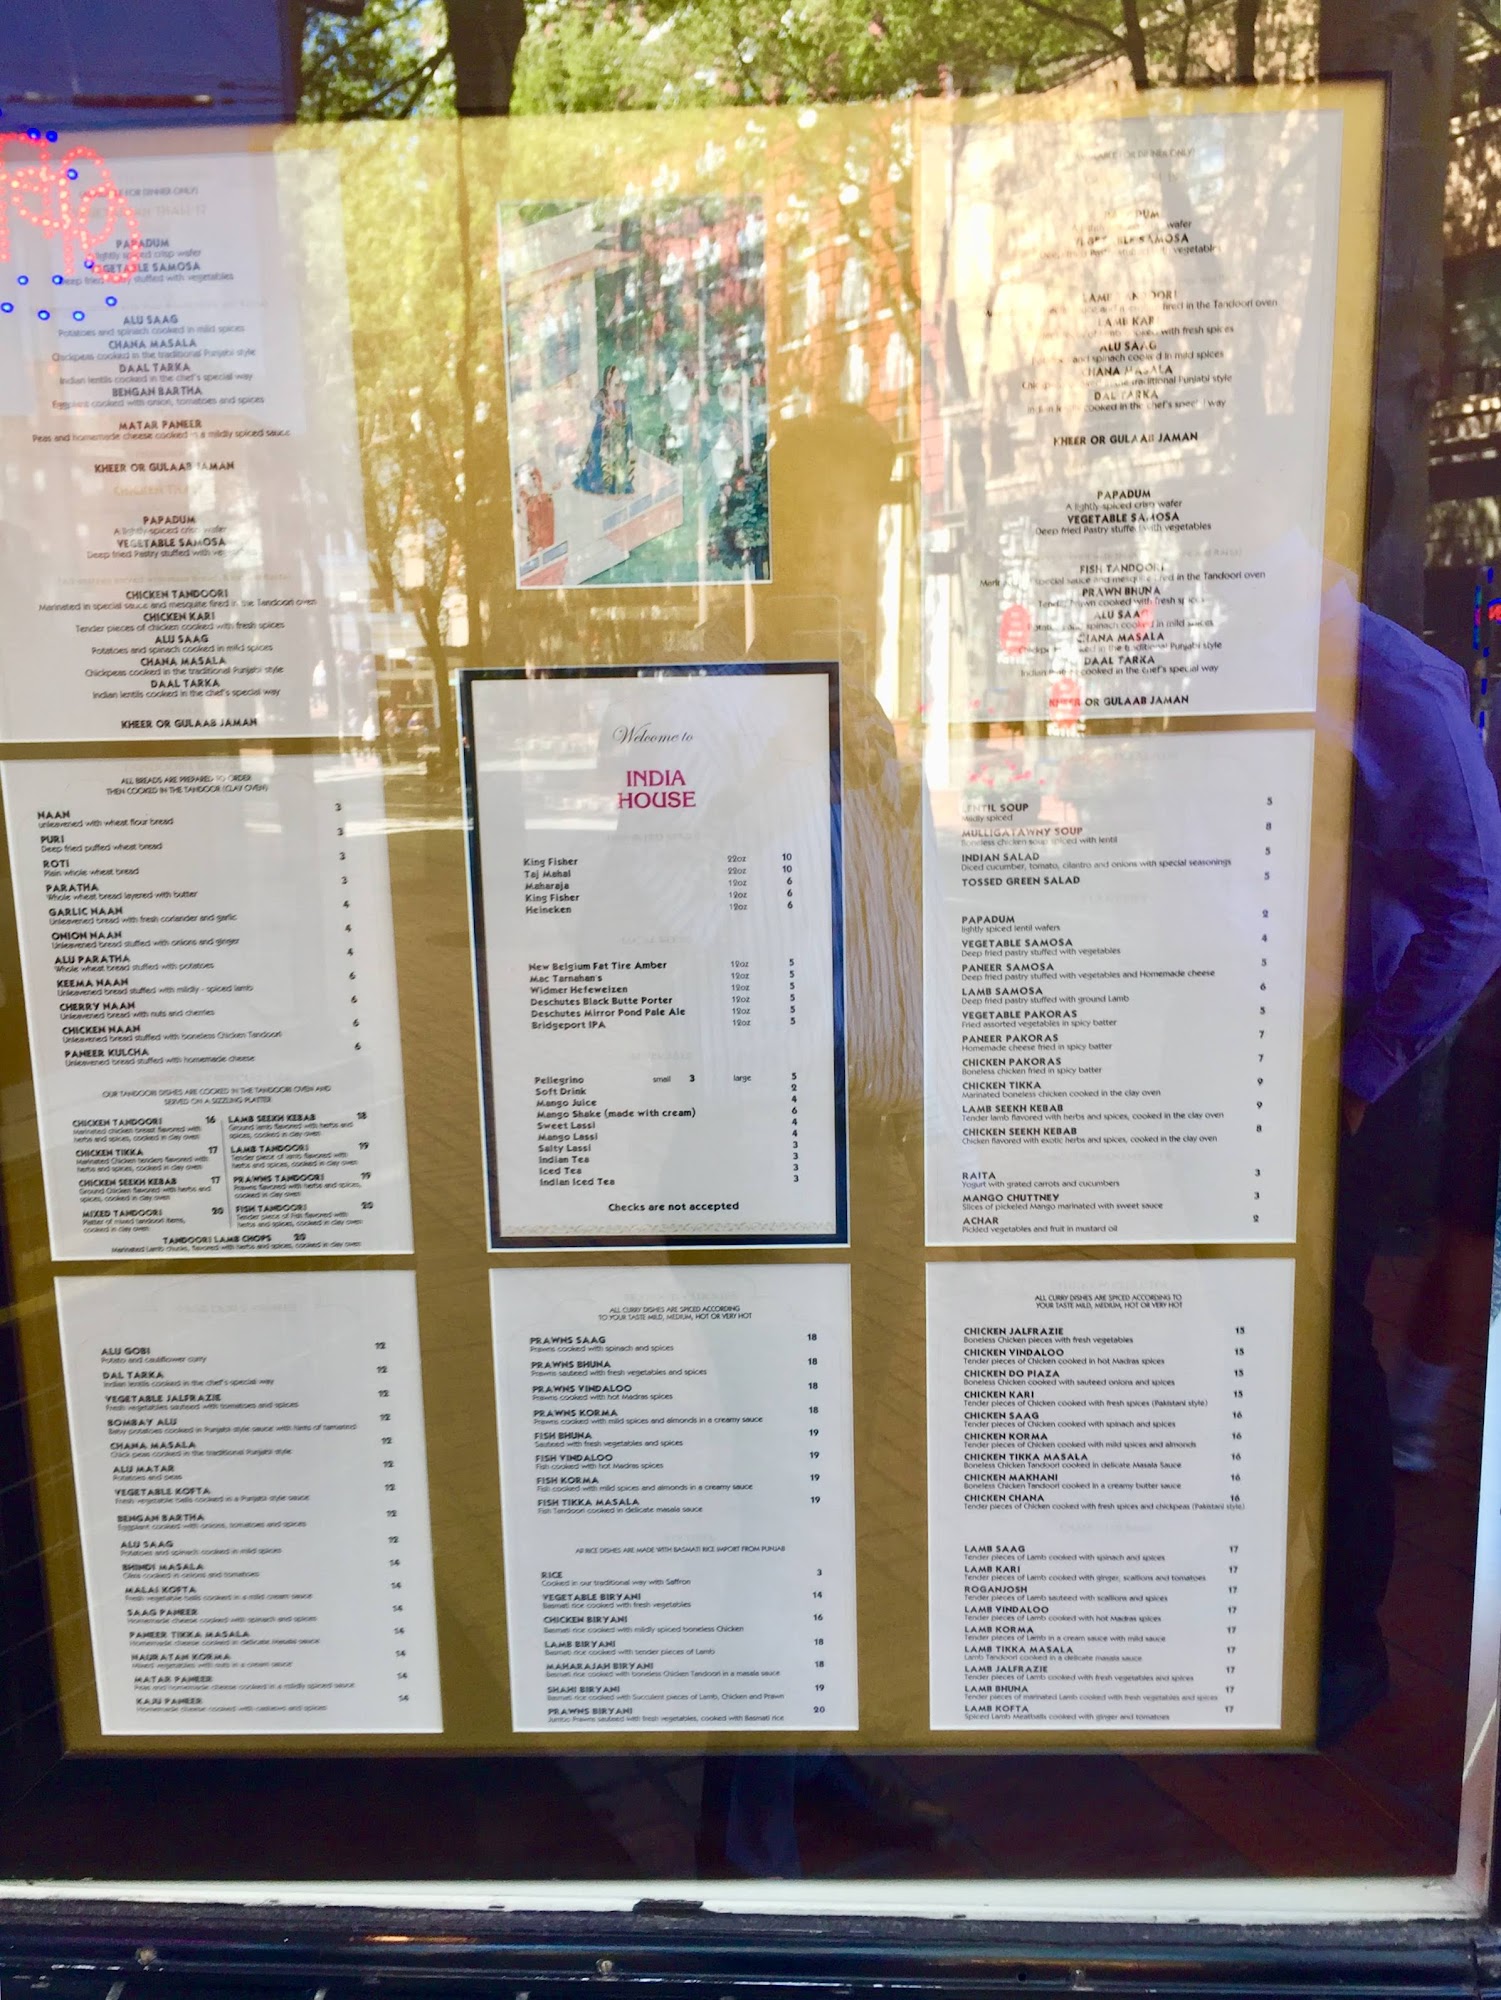 (AVAILABLE FOR DINNER ONLY)
PAPADUM
lightly spiced crisp wafer
VEGETABLE SAMOSA
Deep fried Pastry stuffed with vegetables
ALU SAAG
Potatoes and spinach cooked in mild spices
CHANA MASALA
Chickpeas cooked in the traditional Punjabi style
DAAL TARKA
Indian lentils cooked in the chef's special way
BENGAN BARTHA
Eggplant cooked with onion, tomatoes and spices
MATAR PANEER
Peas and homemade cheese cooked in a mildly spiced sauce
KHEER OR GULAAB JAMAN
PAPADUM
A lightly-spiced crisp wafer
VEGETABLE SAMOSA
Deep fried Pastry stuffed with vegetables
CHICKEN TANDOORI
Marinated in special sauce and mesquite fired in the Tandoori oven
CHICKEN KARI
Tender pieces of chicken cooked with fresh spices
ALU SAAG
Potatoes and spinach cooked in mild spices
CHANA MASALA
Chickpeas cooked in the traditional Punjabi style
DAAL TARKA
Indian lentils cooked in the chef's special way
KHEER OR GULAAB JAMAN
PAPADUM
wafer
VEGETABLE SAMOSA
vegetables
LAMB TANDOORI
fired in the Tandoori oven
LAMB KARI
cooked with fresh spices
ALU SAAG
and spinach cooked in mild spices
CHANA MASALA
traditional Punjabi style
DAL TARKA
cooked in the chef's special way
KHEER OR GULAAB JAMAN
PAPADUM
A lightly-spiced crisp wafer
VEGETABLE SAMOSA
Deep fried Pastry stuffed with vegetables
FISH TANDOORI
special sauce and mesquite fired in the Tandoori oven
PRAWN BHUNA
cooked with fresh spices
ALU SAAG
cooked in mild spices
CHANA MASALA
cooked in the traditional Punjabi style
DAAL TARKA
Indian cooked in the chef's special way
KHEER OR GULAAB JAMAN
ALL BREADS ARE PREPARED TO ORDER
THEN COOKED IN THE TANDOOR (CLAY OVEN)
NAAN 3
unleavened with wheat flour bread
PURI 3
Deep fried puffed wheat bread
ROTI 3
Plain whole wheat bread
PARATHA 3
Whole wheat bread layered with butter
GARLIC NAAN 4
Unleavened bread with fresh coriander and garlic
ONION NAAN 4
Unleavened bread stuffed with onions and ginger
ALU PARATHA 4
Whole wheat bread stuffed with potatoes
KEEMA NAAN 6
Unleavened bread stuffed with mildly - spiced lamb
CHERRY NAAN 6
Unleavened bread with nuts and cherries
CHICKEN NAAN 6
Unleavened bread stuffed with boneless Chicken Tandoori
PANEER KULCHA 6
Unleavened bread stuffed with homemade cheese
OUR TANDOORI DISHES ARE COOKED IN THE TANDOORI OVEN AND
SERVED ON A SIZZLING PLATTER
CHICKEN TANDOORI 16
Marinated chicken breast flavored with
herbs and spices, cooked in clay oven
CHICKEN TIKKA 17
Marinated Chicken tenders flavored with
herbs and spices, cooked in clay oven
CHICKEN SEEKH KEBAB 17
Ground Chicken flavored with herbs and
spices, cooked in clay oven
MIXED TANDOORI 20
Platter of mixed tandoori items,
cooked in clay oven
LAMB SEEKH KEBAB 18
Ground lamb flavored with herbs and
spices, cooked in clay oven
LAMB TANDOORI 19
Tender piece of lamb flavored with
herbs and spices, cooked in clay oven
PRAWNS TANDOORI 19
Prawns flavored with herbs and spices,
cooked in clay oven
FISH TANDOORI 20
Tender piece of Fish flavored with
herbs and spices, cooked in clay oven
TANDOORI LAMB CHOPS 20
Marinated Lamb chucks, flavored with herbs and spices, cooked in clay oven
Welcome to
INDIA
HOUSE
King Fisher 22oz 10
Taj Mahal 22oz 10
Maharaja 12oz 6
King Fisher 12oz 6
Heineken 12oz 6
New Belgium Fat Tire Amber 12oz 5
Mac Tarnahan's 12oz 5
Widmer Hefeweizen 12oz 5
Deschutes Black Butte Porter 12oz 5
Deschutes Mirror Pond Pale Ale 12oz 5
Bridgeport IPA 12oz 5
Pellegrino small 3 large 5
Soft Drink 2
Mango Juice 4
Mango Shake (made with cream) 6
Sweet Lassi 4
Mango Lassi 4
Salty Lassi 3
Indian Tea 3
Iced Tea 3
Indian Iced Tea 3
Checks are not accepted
LENTIL SOUP 5
Mildly spiced
MULLIGATAWNY SOUP 8
Boneless chicken soup spiced with lentil
INDIAN SALAD 5
Diced cucumber, tomato, cilantro and onions with special seasonings
TOSSED GREEN SALAD 5
PAPADUM 2
lightly spiced lentil wafers
VEGETABLE SAMOSA 4
Deep fried pastry stuffed with vegetables
PANEER SAMOSA 5
Deep fried pastry stuffed with vegetables and Homemade cheese
LAMB SAMOSA 6
Deep fried pastry stuffed with ground Lamb
VEGETABLE PAKORAS 5
Fried assorted vegetables in spicy batter
PANEER PAKORAS 7
Homemade cheese fried in spicy batter
CHICKEN PAKORAS 7
Boneless chicken fried in spicy batter
CHICKEN TIKKA 9
Marinated boneless chicken cooked in the clay oven
LAMB SEEKH KEBAB 9
Tender lamb flavored with herbs and spices, cooked in the clay oven
CHICKEN SEEKH KEBAB 8
Chicken flavored with exotic herbs and spices, cooked in the clay oven
RAITA 3
Yogurt with grated carrots and cucumbers
MANGO CHUTTNEY 3
Slices of pickeled Mango marinated with sweet sauce
ACHAR 2
Pickled vegetables and fruit in mustard oil
ALU GOBI 12
Potato and cauliflower curry
DAL TARKA 12
Indian lentils cooked in the chef's special way
VEGETABLE JALFRAZIE 12
Fresh vegetables sauteed with tomatoes and spices
BOMBAY ALU 12
Baby potatoes cooked in Punjabi style sauce with hints of tamarind
CHANA MASALA 12
Chick peas cooked in the traditional Punjabi style
ALU MATAR 12
Potatoes and peas
VEGETABLE KOFTA 12
Fresh vegetable balls cooked in a Punjabi style sauce
BENGAN BARTHA 12
Eggplant cooked with onions, tomatoes and spices
ALU SAAG 12
Potatoes and spinach cooked in mild spices
BHINDI MASALA 14
Okra cooked in onions and tomatoes
MALAI KOFTA 14
Fresh vegetable balls cooked in a mild cream sauce
SAAG PANEER 14
Homemade cheese cooked with spinach and spices
PANEER TIKKA MASALA 14
Homemade cheese cooked in delicate masala sauce
NAURATAN KORMA 14
Mixed vegetables with nuts in a cream sauce
MATAR PANEER 14
Peas and homemade cheese cooked in a mildly spiced sauce
KAJU PANEER 14
Homemade cheese cooked with cashews and spices
ALL CURRY DISHES ARE SPICED ACCORDING
TO YOUR TASTE MILD, MEDIUM, HOT OR VERY HOT
PRAWNS SAAG 18
Prawns cooked with spinach and spices
PRAWNS BHUNA 18
Prawns sauteed with fresh vegetables and spices
PRAWNS VINDALOO 18
Prawns cooked with hot Madras spices
PRAWNS KORMA 18
Prawns cooked with mild spices and almonds in a creamy sauce
FISH BHUNA 19
Sauteed with fresh vegetables and spices
FISH VINDALOO 19
Fish cooked with hot Madras spices
FISH KORMA 19
Fish cooked with mild spices and almonds in a creamy sauce
FISH TIKKA MASALA 19
Fish Tandoori cooked in delicate masala sauce
All RICE DISHES ARE MADE WITH BASMATI RICE IMPORT FROM PUNJAB
RICE 3
Cooked in our traditional way with Saffron
VEGETABLE BIRYANI 14
Basmati rice cooked with fresh vegetables
CHICKEN BIRYANI 16
Basmati rice cooked with mildly spiced boneless Chicken
LAMB BIRYANI 18
Basmati rice cooked with tender pieces of Lamb
MAHARAJAH BIRYANI 18
Basmati rice cooked with boneless Chicken Tandoori in a masala sauce
SHAHI BIRYANI 19
Basmati rice cooked with Succulent pieces of Lamb, Chicken and Prawn
PRAWNS BIRYANI 20
Jumbo Prawns sauteed with fresh vegetables, cooked with Basmati rice
ALL CURRY DISHES ARE SPICED ACCORDING TO
YOUR TASTE MILD, MEDIUM, HOT OR VERY HOT
CHICKEN JALFRAZIE 15
Boneless Chicken pieces with fresh vegetables
CHICKEN VINDALOO 15
Tender pieces of Chicken cooked in hot Madras spices
CHICKEN DO PIAZA 15
Boneless Chicken cooked with sauteed onions and spices
CHICKEN KARI 15
Tender pieces of Chicken cooked with fresh spices (Pakistani style)
CHICKEN SAAG 16
Tender pieces of Chicken cooked with spinach and spices
CHICKEN KORMA 16
Tender pieces of Chicken cooked with mild spices and almonds
CHICKEN TIKKA MASALA 16
Boneless Chicken Tandoori cooked in delicate Masala Sauce
CHICKEN MAKHANI 16
Boneless Chicken Tandoori cooked in a creamy butter sauce
CHICKEN CHANA 16
Tender pieces of Chicken cooked with fresh spices and chickpeas (Pakistani style)
LAMB SAAG 17
Tender pieces of Lamb cooked with spinach and spices
LAMB KARI 17
Tender pieces of Lamb cooked with ginger, scallions and tomatoes
ROGANJOSH 17
Tender pieces of Lamb sauteed with scallions and spices
LAMB VINDALOO 17
Tender pieces of Lamb cooked with hot Madras spices
LAMB KORMA 17
Tender pieces of Lamb in a cream sauce with mild sauce
LAMB TIKKA MASALA 17
Lamb Tandoori cooked in a delicate masala sauce
LAMB JALFRAZIE 17
Tender pieces of Lamb cooked with fresh vegetables and spices
LAMB BHUNA 17
Tender pieces of marinated Lamb cooked with fresh vegetables and spices
LAMB KOFTA 17
Spiced Lamb Meatballs cooked with ginger and tomatoes